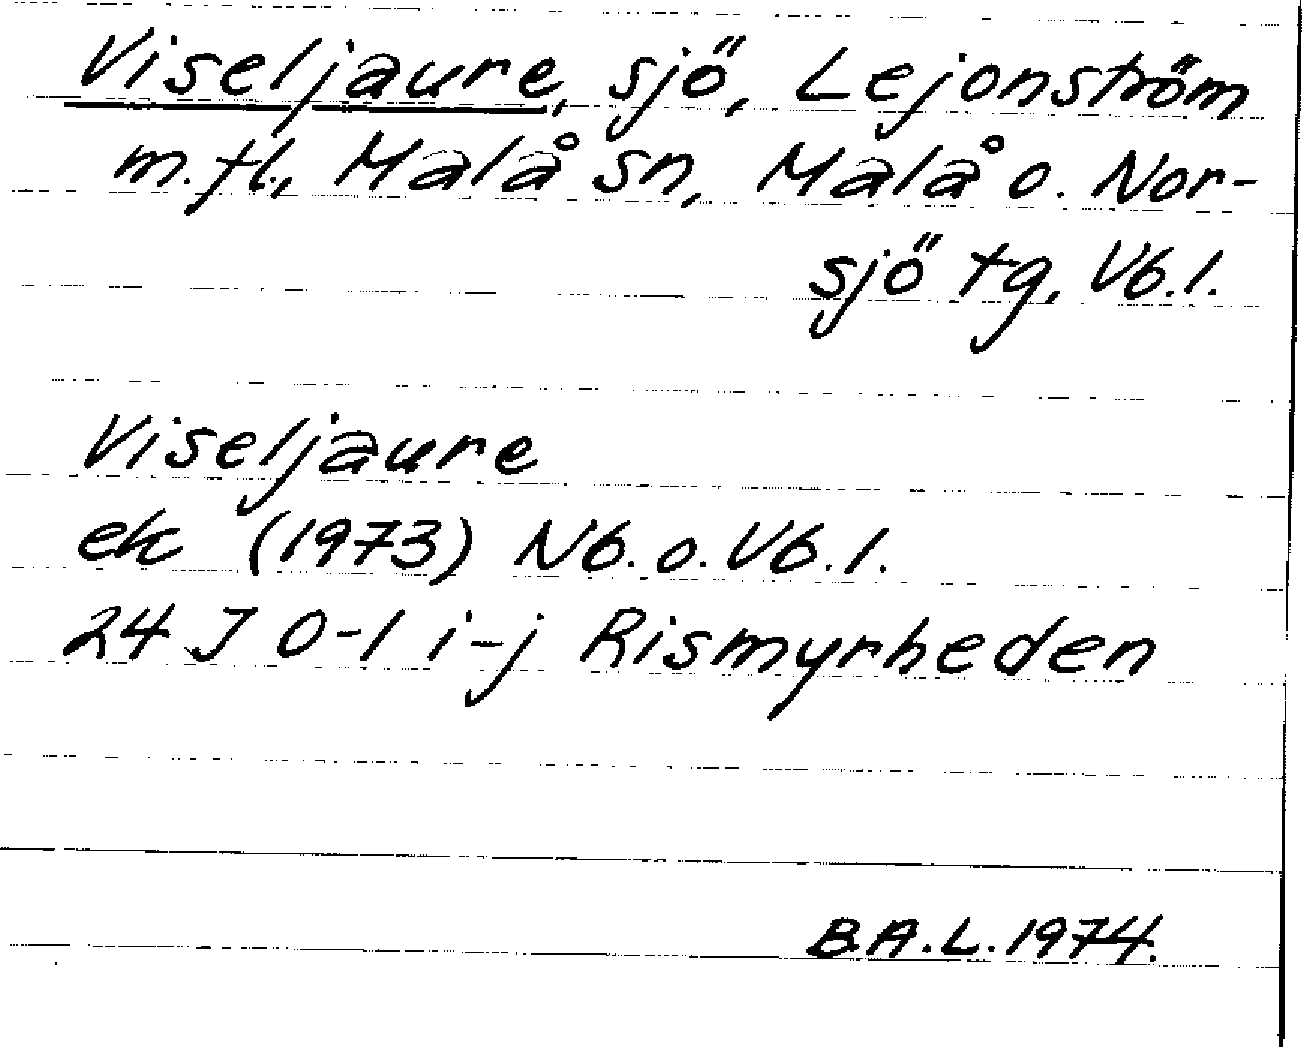 Viseljaure, sjö, Lejonström
m.fl., Malå sn, Malå o. Nor-
sjö tg, Vb.l.
Viseljaure
ek (1973) Nb.o.Vb.l.
24 J 0-1 i-j Rismyrheden
B.A.L. 1974.